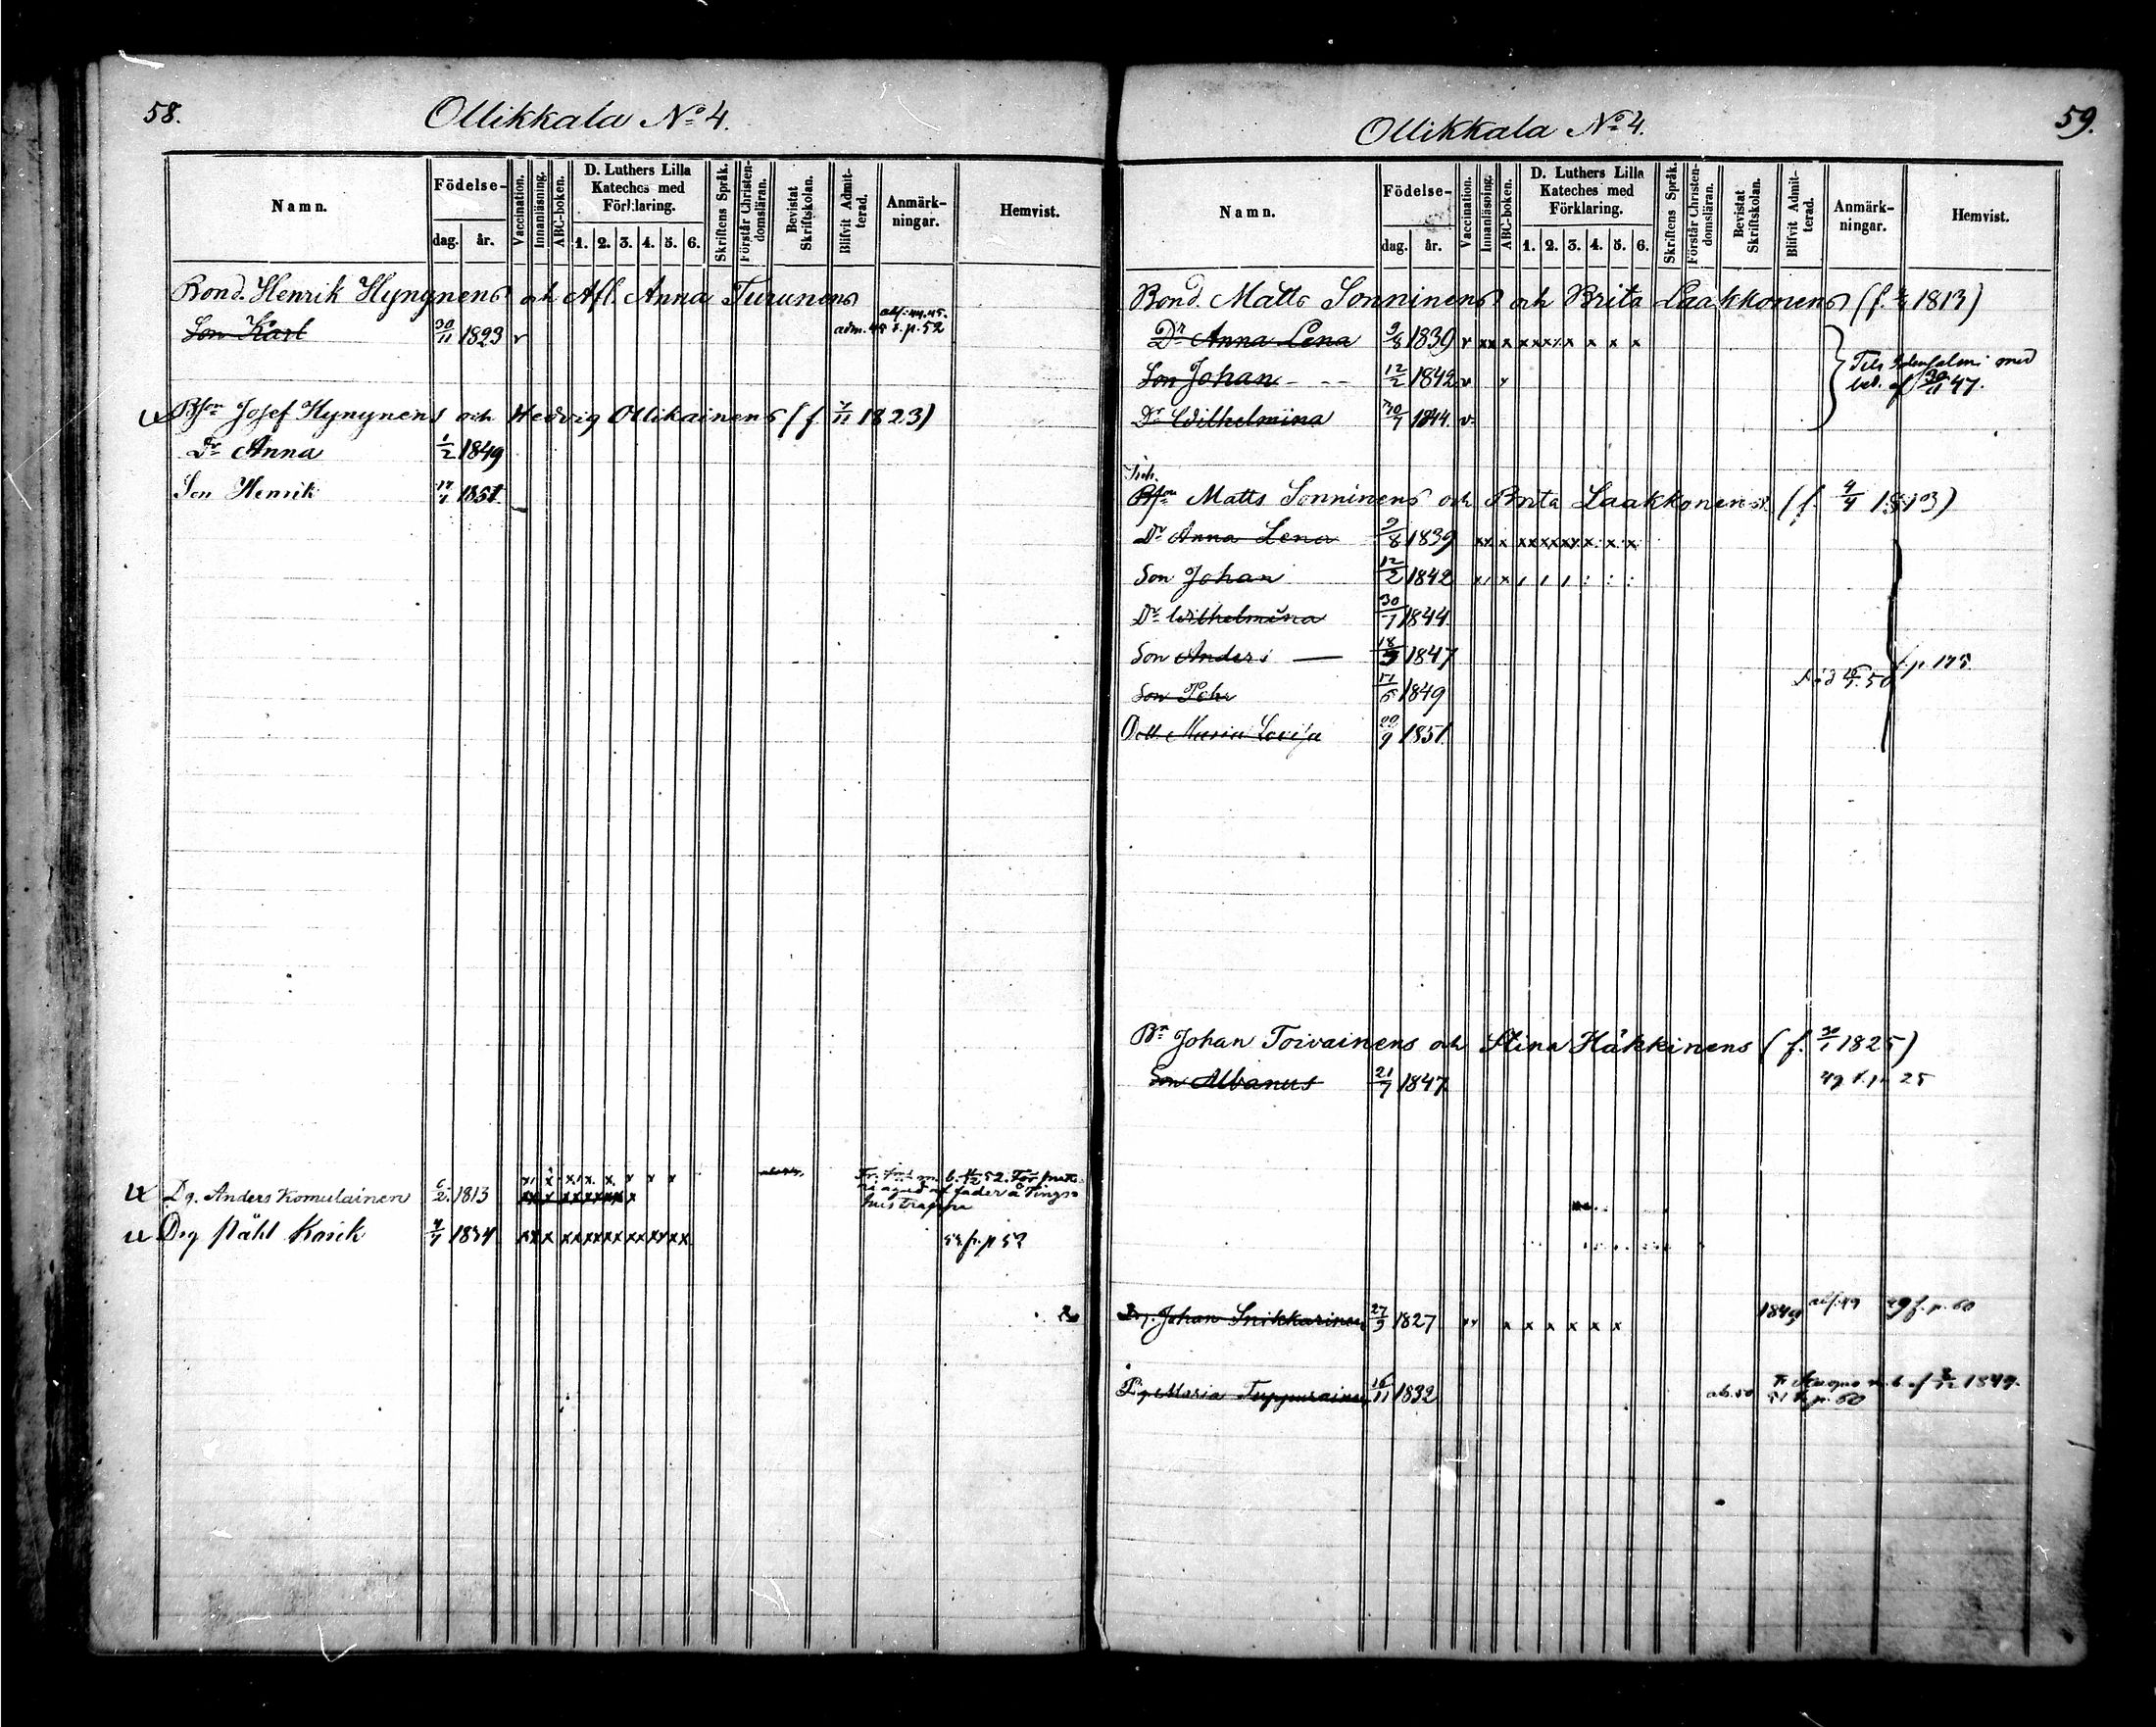 58.
Ollikkala No 4.
Namn.
Födelse-
dag. år.
Vaccination.
Innanläsning.
ABC-boken.
D. Luthers Lilla
Kateches med
Förklaring.
1. 2. 3. 4. 5. 6.
Skriftens Språk.
Förstår Christen-
domsläran.
Bevistat
Skriftskolan.
Blifvit Admit-
terad.
Anmärk-
ningar.
Hemvist.
Bond. Henrik Hynynens och Afl. Anna Turunens
Son Karl 30/11 1823 v adm. 45 f. p. 52
Bson Josef Hynynens och Hedvig Ollikainens (f. /11 1823)
Dr Anna 1/2 1849
Son Henrik 1851
Dg. Anders Komulainen 6/2 1813 x x x x x x x
Drg Ståhl 1834 fr. p 52
59.
Ollikkala No 4.
Namn.
Födelse-
dag. år.
Vaccination.
Innanläsning.
ABC-boken.
D. Luthers Lilla
Kateches med
Förklaring.
1. 2. 3. 4. 5. 6.
Skriftens Språk.
Förstår Christen-
domsläran.
Bevistat
Skriftskolan.
Blifvit Admit-
terad.
Anmärk-
ningar.
Hemvist.
Bond. Matts Sonninens och Brita Laakkonens (f. 1813)
Dr Anna Lena 9/8 1839 v xx x xxxx x x x x
Son Johan 12/2 1842 v
Till Idensalmi med
bet. af 30/11 47.
Dr Wilhelmina 30/7 1844. v.
Inh.
Bson Matts Sonninens och Brita Laakkonens (f. 4/4 1813)
Dr Anna Lena 9/8 1839
Son Johan 12/2 1842
Dr Wilhelmina 30/7 1844
Son Anders 18/9 1847
f. p. 175
Son Pehr 1849 död 50
Dott. Maria Lovisa 1851.
Br Johan Toivainens och Stina Häkkinens (f. 30/1 1825)
Son Albanus 21/7 1847 49 f. p. 25
Dr. Johan Snikkarinen 27/9 1827 x x x x x x 1849 49 f. p. 60
Pig. Maria Tuppurainen 16/11 1832 1849.
51 f. p. 60